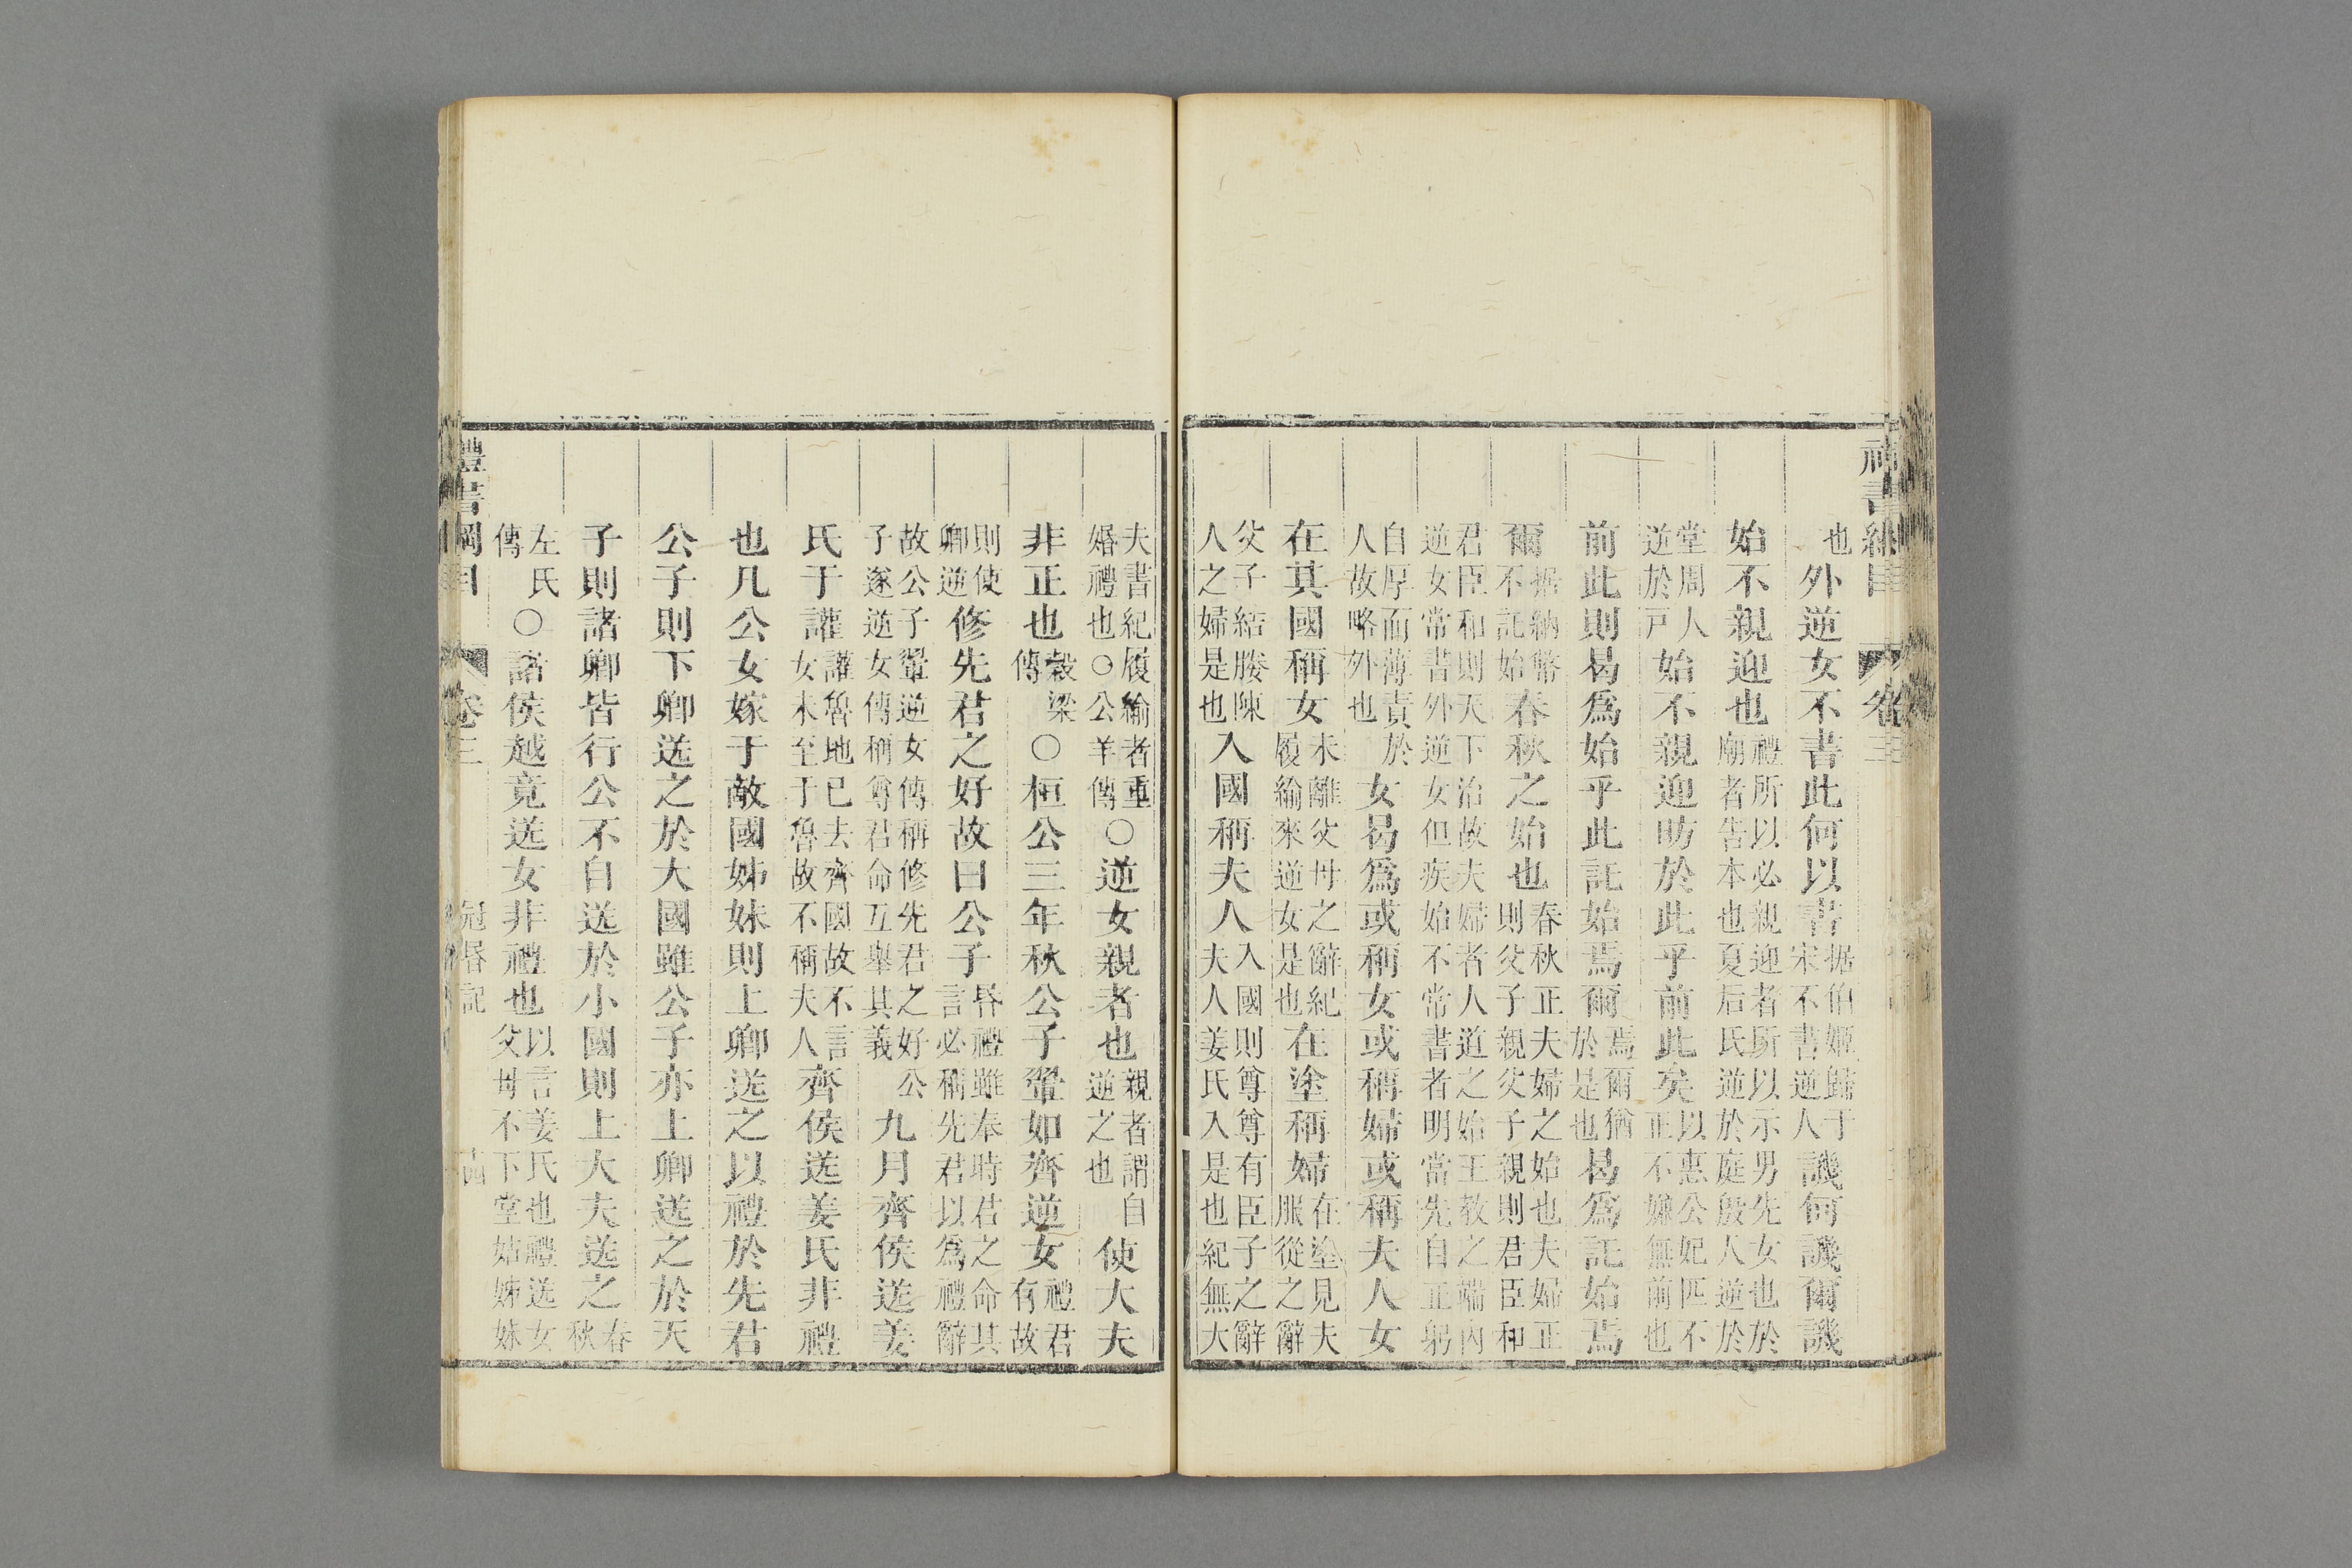 禮書綱目 卷三
也外逆女不書此何以書据伯姬歸于宋不書逆人譏何譏爾譏
始不親迎也禮所以必親迎者所以示男先女也於廟者告本也夏后氏逆於庭殷人逆於
堂周人逆於戸始不親迎昉於此乎前此矣以惠公妃匹不正不嫌無前也
前此則曷爲始乎此託始焉爾焉爾猶於是也曷爲託始焉
爾据納幣不託始春秋之始也春秋正夫婦之始也夫婦正則父子親父子親則君臣和
君臣和則天下治故夫婦者人道之始王教之端內逆女常書外逆女但疾始不常書者明當先自正躬
自厚而薄責於人故略外也女曷爲或稱女或稱婦或稱夫人女
在其國稱女未離父母之辭紀履緰來逆女是也在塗稱婦在塗見夫服從之辭
父子結媵陳人之婦是也入國稱夫人入國則尊尊有臣子之辭夫人姜氏入是也紀無大
夫書紀履緰者重婚禮也○公羊傳○逆女親者也親者謂自逆之也使大夫
非正也穀梁傳○桓公三年秋公子翬如齊逆女禮君有故
則使卿逆修先君之好故曰公子昏禮雖奉時君之命其言必稱先君以爲禮辭
故公子翬逆女傳稱修先君之好公子遂逆女傳稱尊君命互舉其義九月齊侯送姜
氏于讙讙魯地已去齊國故不言女未至于魯故不稱夫人齊侯送姜氏非禮
也凡公女嫁于敵國姊妹則上卿送之以禮於先君
公子則下卿送之於大國雖公子亦上卿送之於天
子則諸卿皆行公不自送於小國則上大夫送之春秋
左氏傳○諸侯越竟送女非禮也以言姜氏也禮送女父母不下堂姑姊妹
禮書綱目 卷三 冠昏記